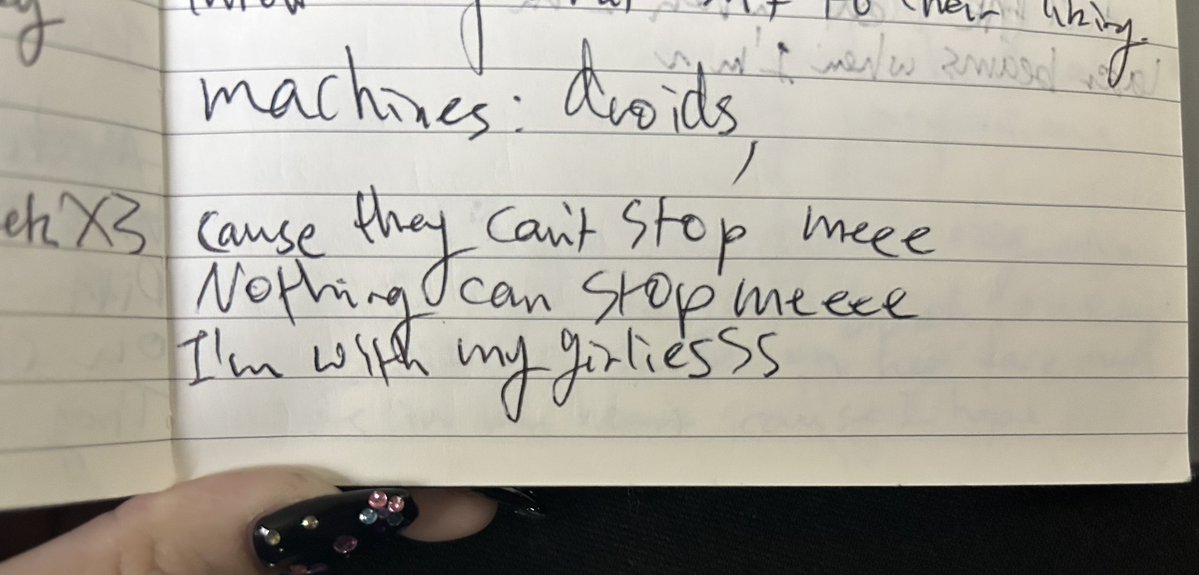 to their liking.
machines: droids,
X3 cause they can't stop meee
Nothing can stop meeee
I'm with my girliesss